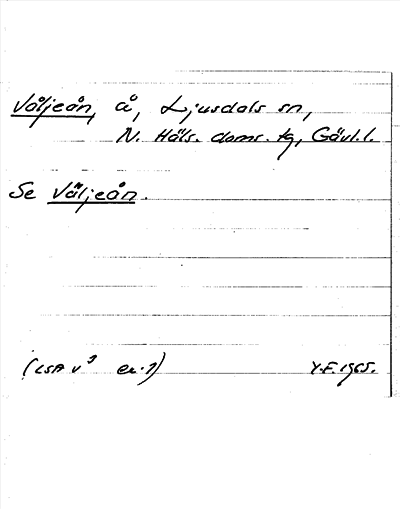 Våljeån, å, Ljusdals sn,
N. Häls. doms. tg, Gävl.l.
Se Väljeån.
(LSA v³ ek. 1)
Y.F. 1965.